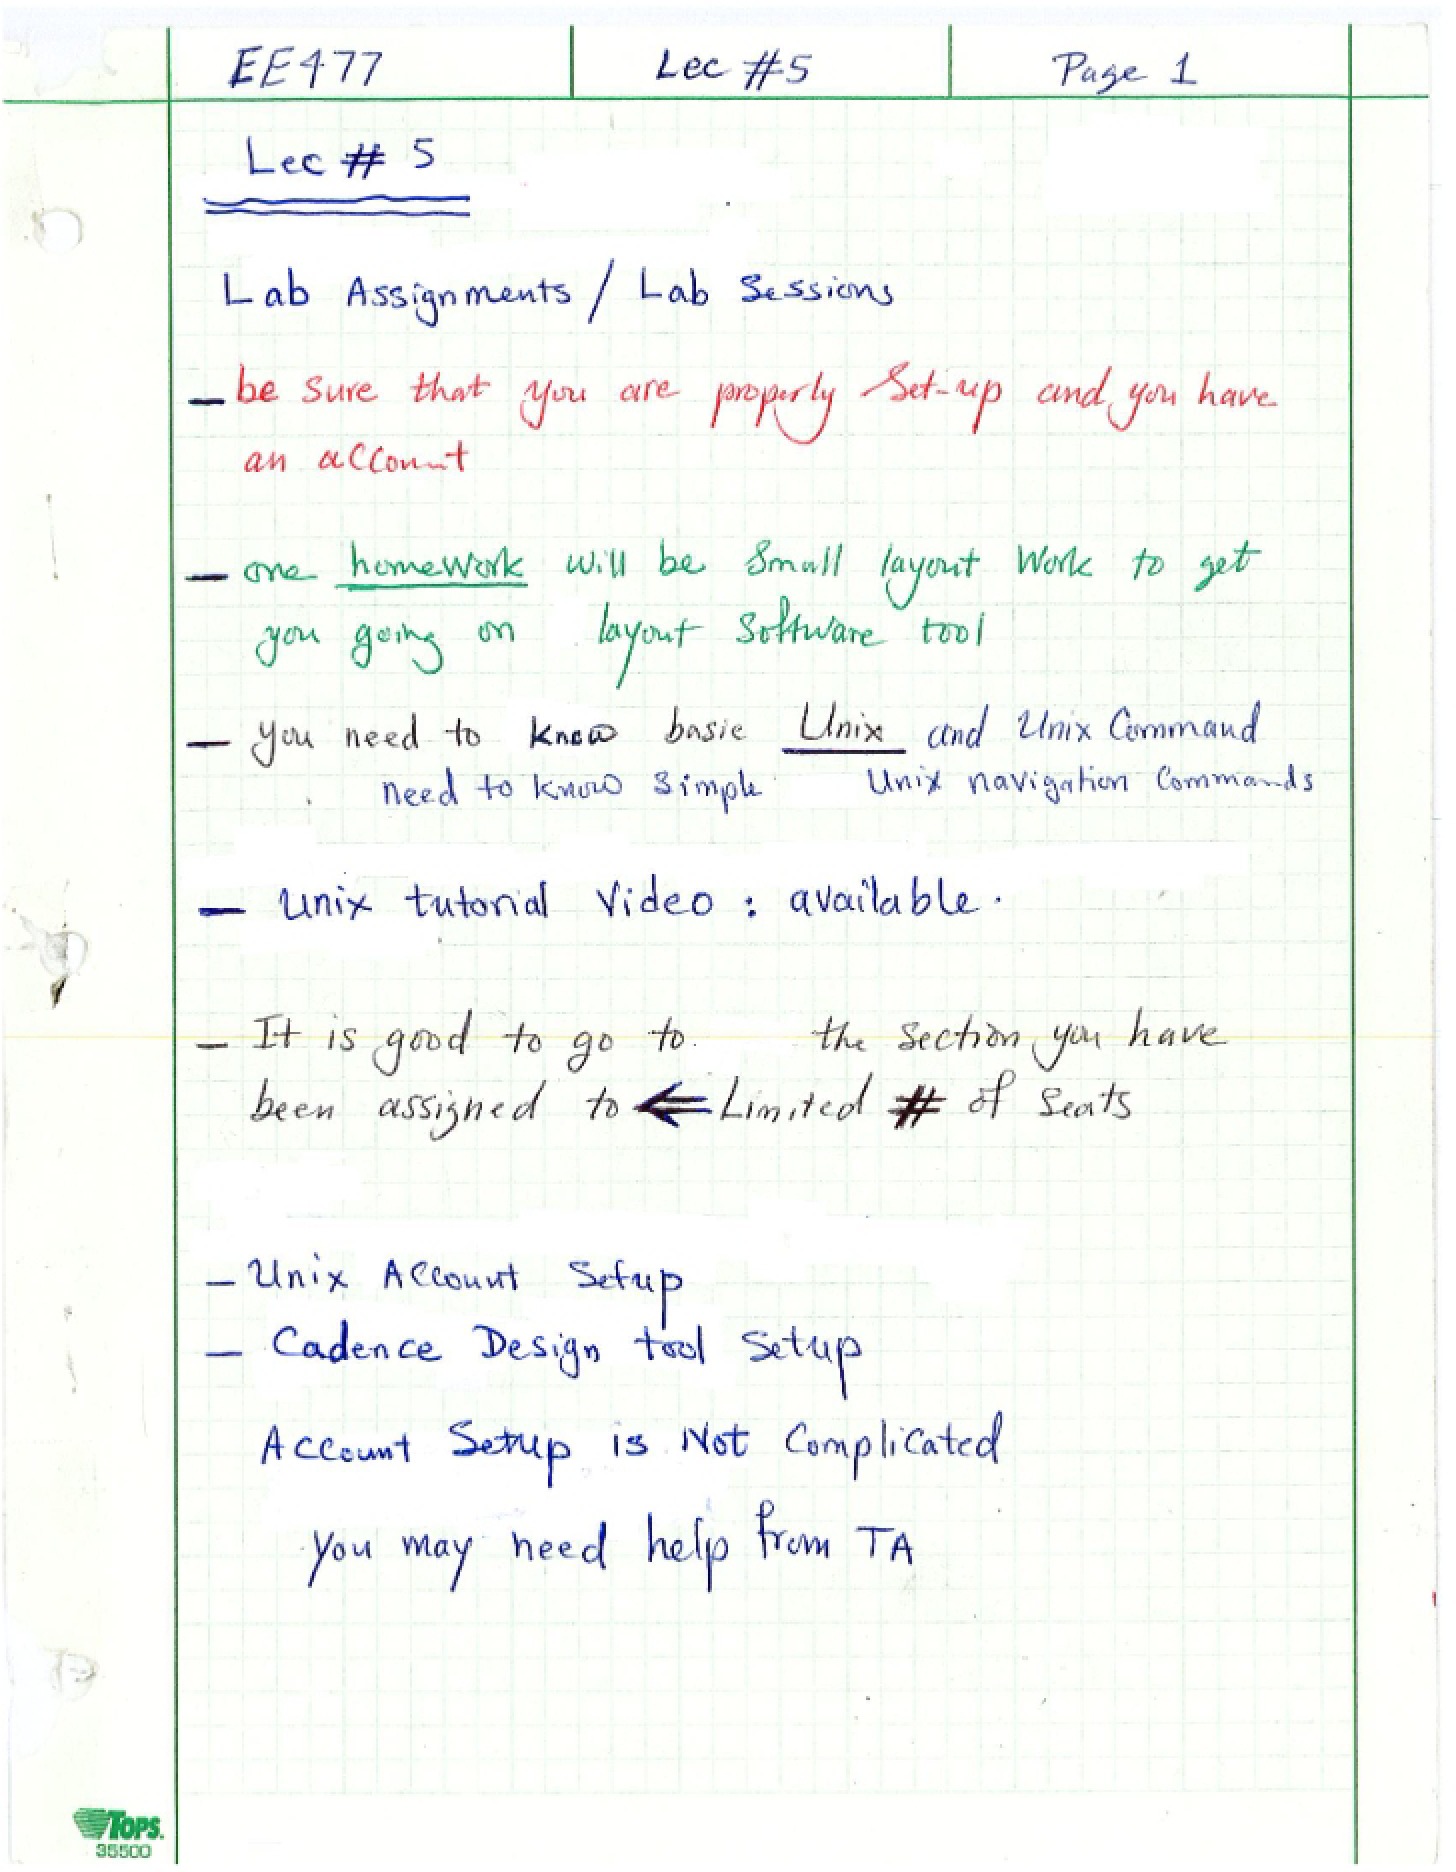 EE477 Lec #5 Page 1
Lec # 5
Lab Assignments / Lab Sessions
— be sure that you are properly Set-up and you have
an account
— one homework will be small layout work to get
you going on layout software tool
— you need to know basic Unix and Unix Command
need to know simple Unix navigation Commands
— Unix tutorial Video : available.
— It is good to go to the section you have
been assigned to ⇐ Limited # of seats
— Unix Account Setup
— Cadence Design tool Setup
Account Setup is Not Complicated
You may need help from TA
TOPS.
35500